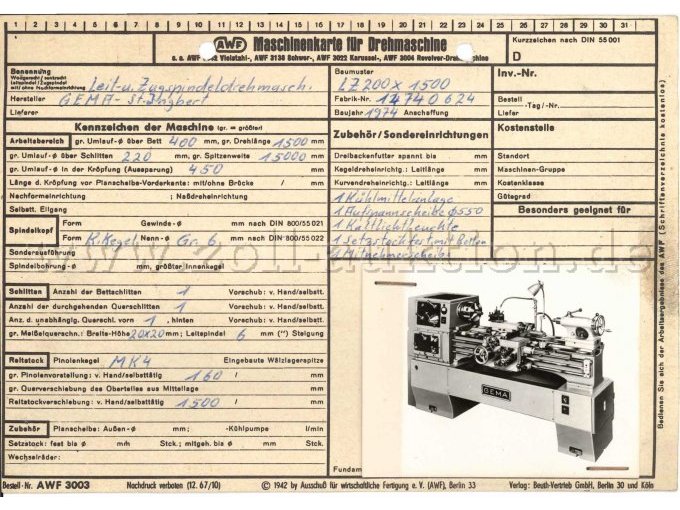 1 2 3 4 5 6 7 8 9 10 11 12 13 14 15 16 17 18 19 20 21 22 23 24 25 26 27 28 29 30 31
AWF Maschinenkarte für Drehmaschine
s. a. AWF Vielstahl-, AWF 3138 Schwer-, AWF 3022 Karussel-, AWF 3004 Revolver-Drehmaschine
Kurzzeichen nach DIN 55 001
D
Benennung
Waagerecht / senkrecht
Leitspindel / Zugspindel
mit/ohne Nachformeinrichtung
Leit- u. Zugspindeldrehmasch.
Hersteller GEMA - St. Ingbert
Lieferer
Baumuster LZ 200 x 1500
Fabrik-Nr. 14740624
Baujahr 1974 Anschaffung
Inv.-Nr.
Bestell
Lieferer -Tag / -Nr.
Kennzeichen der Maschine (gr. = größter)
Arbeitsbereich gr. Umlauf-⌀ über Bett 400 mm, gr. Drehlänge 1500 mm
gr. Umlauf-⌀ über Schlitten 220 mm, gr. Spitzenweite 15000 mm
gr. Umlauf-⌀ in der Kröpfung (Aussparung) 450 mm
Länge d. Kröpfung vor Planscheibe-Vorderkante: mit/ohne Brücke / mm
Nachformeinrichtung ; Naßdreheinrichtung
Selbstt. Eilgang
Spindelkopf Form Gewinde-⌀ mm nach DIN 800/55 021
Form K.Kegel Nenn-⌀ Gr. 6 mm nach DIN 800/55 022
Sonderausführung
Spindelbohrung-⌀ mm, größter Innenkegel
Schlitten Anzahl der Bettschlitten 1 Vorschub: v. Hand/selbstt.
Anzahl der durchgehenden Querschlitten 1 Vorschub: v. Hand/selbstt.
Anz. d. unabhängig. Querschl. vorn 1, hinten Vorschub: v. Hand/selbstt.
gr. Meißelquerschn.: Breite-Höhe 20x20 mm; Leitspindel 6 mm (") Steigung
Reitstock Pinolenkegel MK4 Eingebaute Wälzlagerspitze
gr. Pinolenvorstellung: v. Hand/selbsttätig 160 / mm
gr. Querverschiebung des Oberteiles aus Mittellage mm
Reitstockverschiebung: v. Hand/selbsttätig 1500 / mm
Zubehör Planscheibe: Außen-⌀ mm; -Kühlpumpe l/min
Setzstock: fest bis ⌀ mm Stck.; mitgeh. bis ⌀ mm Stck.
Wechselräder:
Zubehör / Sondereinrichtungen
Dreibackenfutter spannt bis mm
Kegeldreheinrichtg.: Leitlänge mm
Kurvendreheinrichtg.: Leitlänge mm
1 Kühlmittelanlage
1 Aufspannscheibe ⌀ 550
1 Kaltlichtleuchte
1 Setzstock fest mit Rollen
1 Mitnehmerscheibe
Kostenstelle
Standort
Maschinen-Gruppe
Kostenklasse
Gütegrad
Besonders geeignet für
GEMA
Fundam
Bedienen Sie sich der Arbeitsergebnisse des AWF (Schriftenverzeichnis kostenlos)
Bestell-Nr. AWF 3003 Nachdruck verboten (12. 67/10) © 1942 by Ausschuß für wirtschaftliche Fertigung e. V. (AWF), Berlin 33 Verlag: Beuth-Vertrieb GmbH, Berlin 30 und Köln
www.zoll-auktion.de